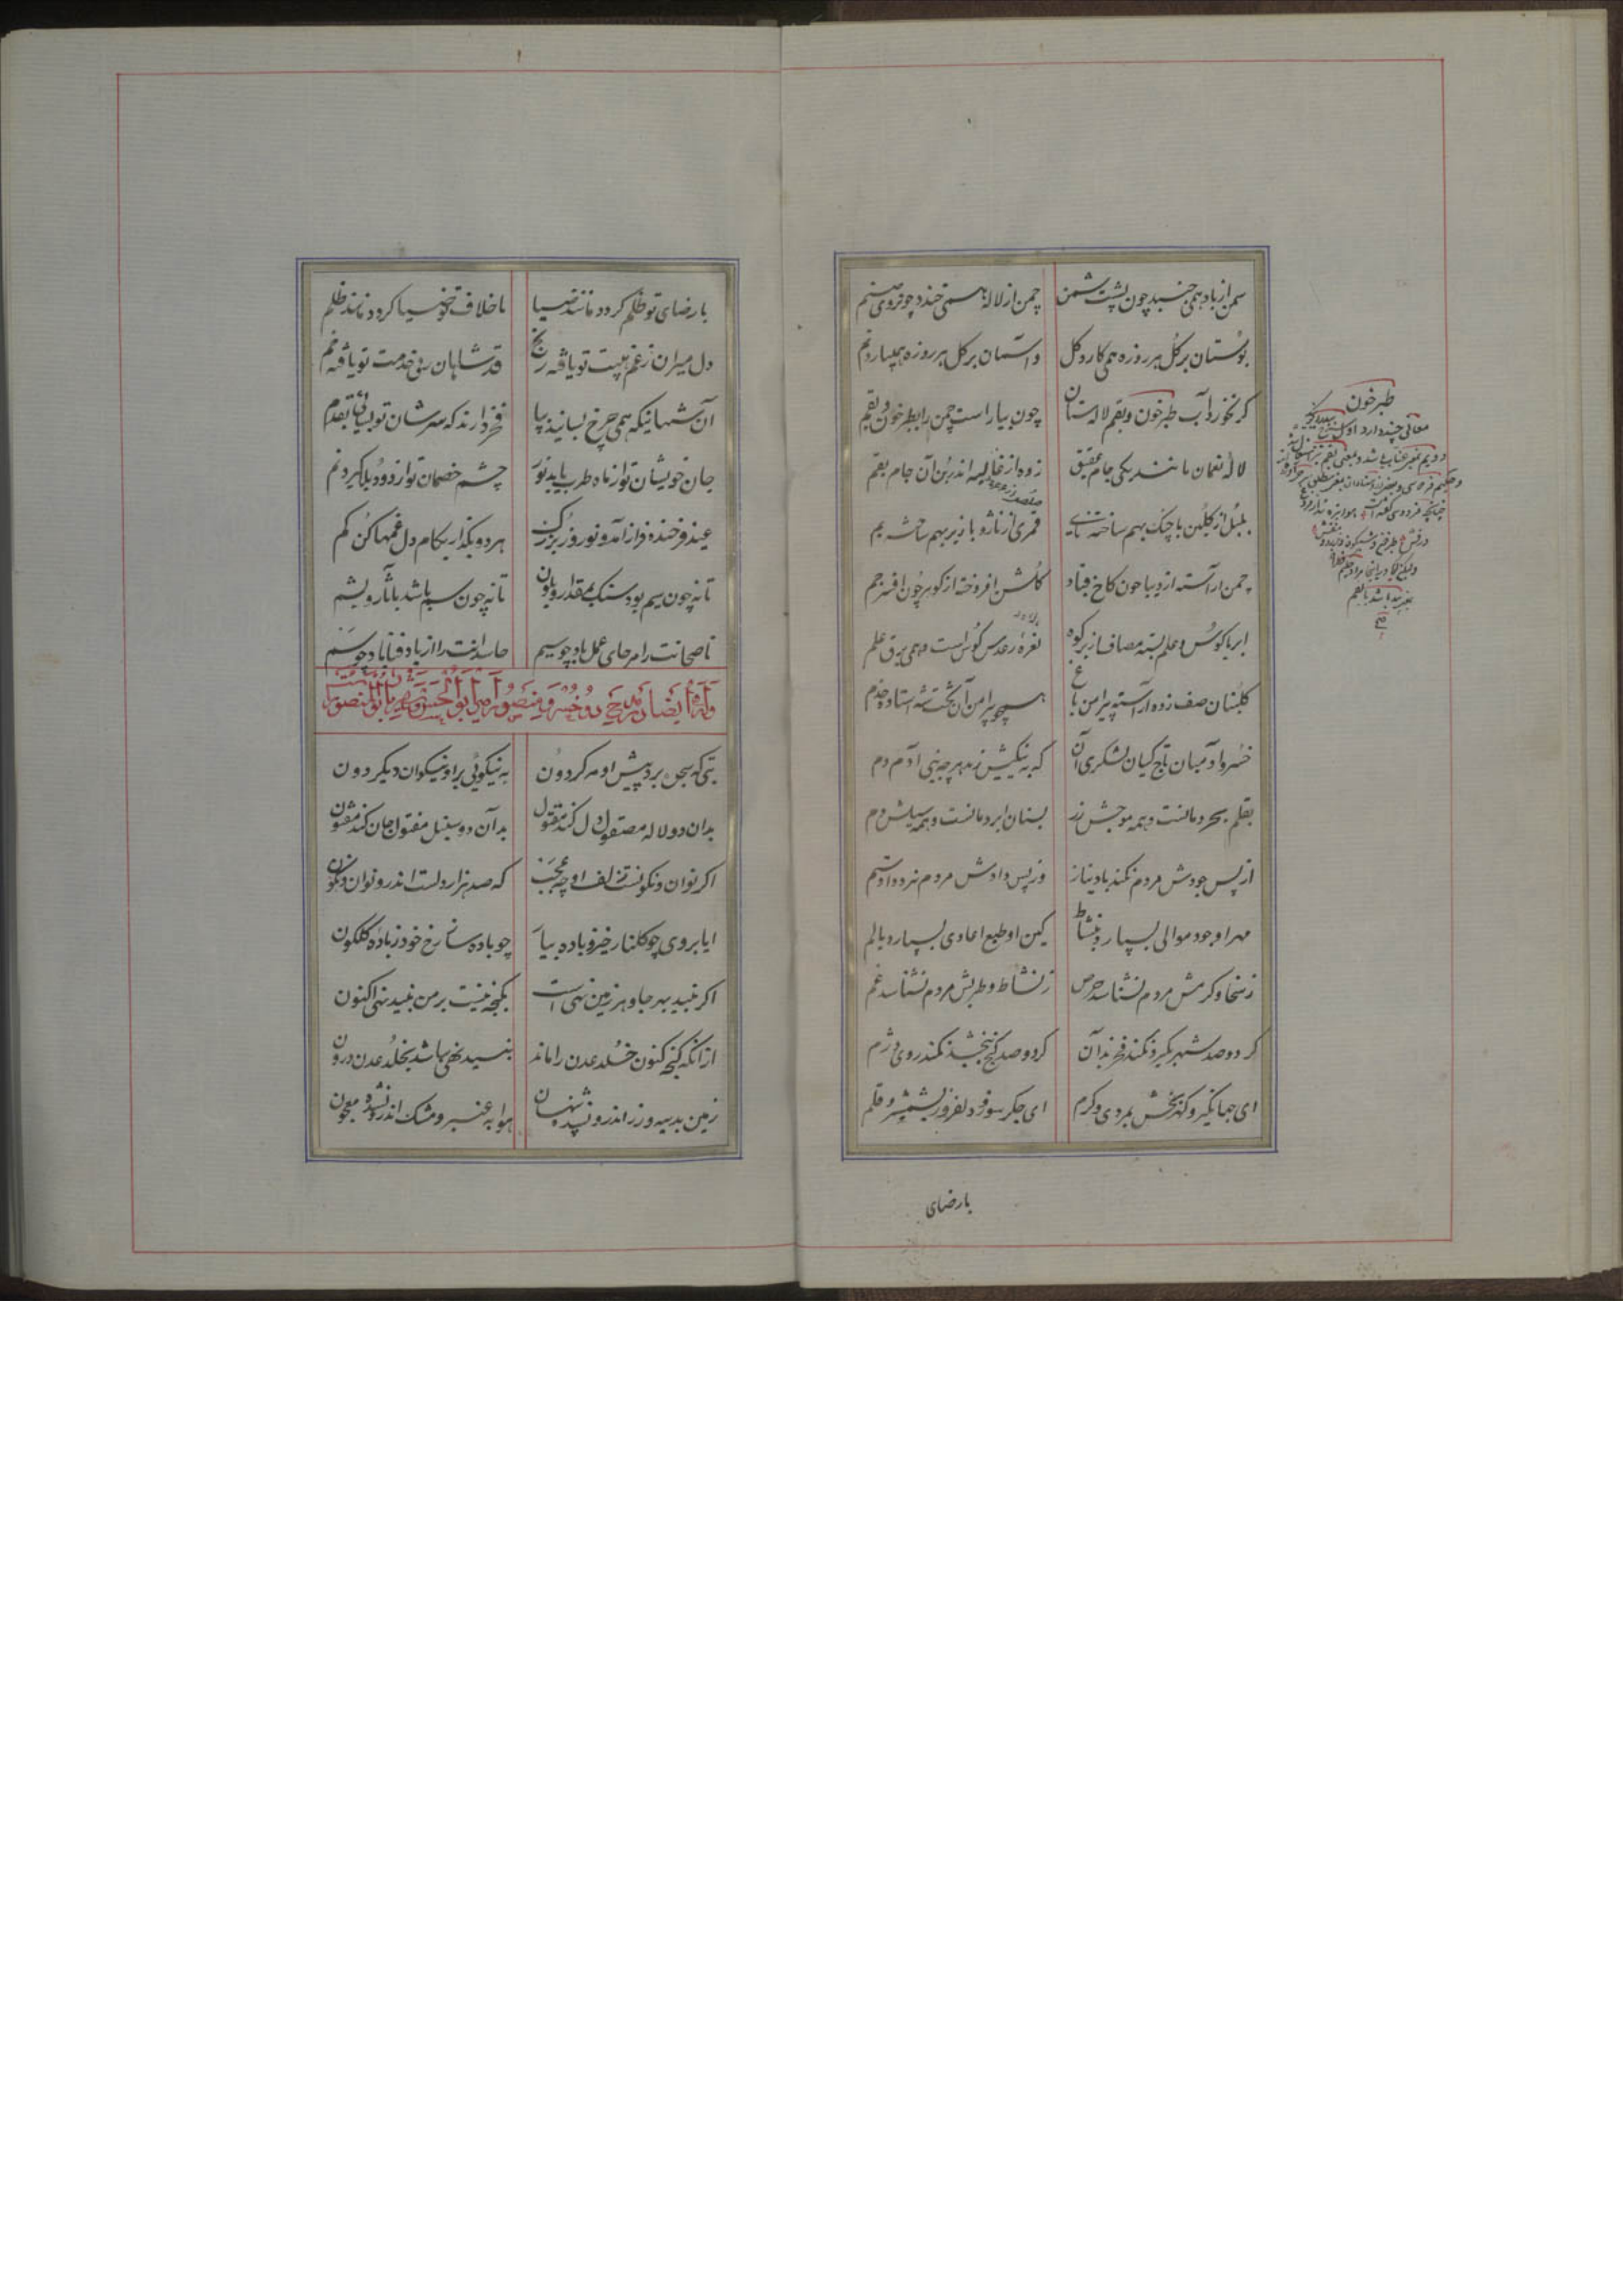 سمن از باد همی خنبد چون پشت شمن چمن از لاله همی خندد چو نروی صنم
بوستان بر گل هر روزه همی کارد گل واسمان بر گل هر روزه همیبارد نم
کر نخورد آب طبرخون و بقم لالستان چون بیاراست چمن را بطبرخون و بقم
لاله نعمان مانند یکی جام عقیق زده از غالیه اندر بن آن جام بقم
بلبل از کلبن با چنک بهم ساخته نای قمری از ناژو با زیر بهم ساخته بم
چمن آراسته از دیبا چون کاخ قباد کلشن افروخته از کوهر چون افسر جم
ابر با کوس و علم بسته مصاف از بر کوه نعره رعدش کوس است و همی برق علم
کلبنان صف زده آراسته پیرامن باغ همچو پیرامن آن تخت شه استاده خدم
خسرو آن تاج کیان لشکری آن که به نیکیش زند هر چه بنی آدم دم
بقلم بحر دمانست و همه موجش زر بسنان ابر دمانست و همه سیلش دم
از پس جودش مردم نکند یاد نیاز وز پس دادش مردم نبرد نام ستم
مهر او جود موالی بسپارد بنشاط کین او طبع اعادی بسپارد بالم
ز سخا و کرمش مردم نشناسد حرص ز نشاط و طربش مردم نشناسد غم
کر دو صد شهر بگیرد نکند فخر بدان کر دو صد کنج ببخشد نکند روی دژم
ای جهانگیر و کهر بخش بمردی و کرم ای جکر سوز و دلفروز بشمشیر و قلم
طبرخون
معانی چند دارد اول
بارضای
با رضای تو ظلم کردد مانند ضیا با خلاف تو ضیا کردد مانند ظلم
دل میران ز غم هیبت تو یافته رنج قد شاهان ز پی خدمت تو یافته خم
آن شهانیکه همی چرخ بسایند بپا فخر دارند که سرشان تو بسائی بقدم
جان خویشان تو از ماه طرب یابد نور چشم خصمان تو از دود بلا کیرد نم
عید فرخنده فراز آمد و نوروز بزرک هر دو بکذار بکام دل و غمها کن کم
تا نه چون سیم بود سنک بمقدار و بلون تا نه چون سیم باشد بآثار و یشم
ناصحانت را مر جای عمل باد چو سیم حاسدانت را از باد فنا باد چو سم
وله ایضا در مدح دو خسرو منصور امیر ابوالحسن و میر ابوالمنصور
بتی که سجده برد پیش او مه کردون به نیکوئی بر او نیکوان دیکر دون
بدان دو لاله مصقول دل کند مفتول بدآن دو سنبل مفتول جان کند مفتون
اکر نوان و نکونست زلف او چه عجب که صد هزار دلست اندر و نوان و نکون
ایا بروی چو کلنار خیز و باده بیار چو باده سان رخ خود ز باده کلکون
اکر نبید بهر جا و هر زمین نهی است بکنجه نیست بر من نبید نهی اکنون
از آنکه کنجه کنون خلد عدن را ماند نبید نهی نباشد بخلد عدن درون
زمین بدیبه و زر اندرون شده پنهان هوا به عنبر و مشک اندرون شده معجون